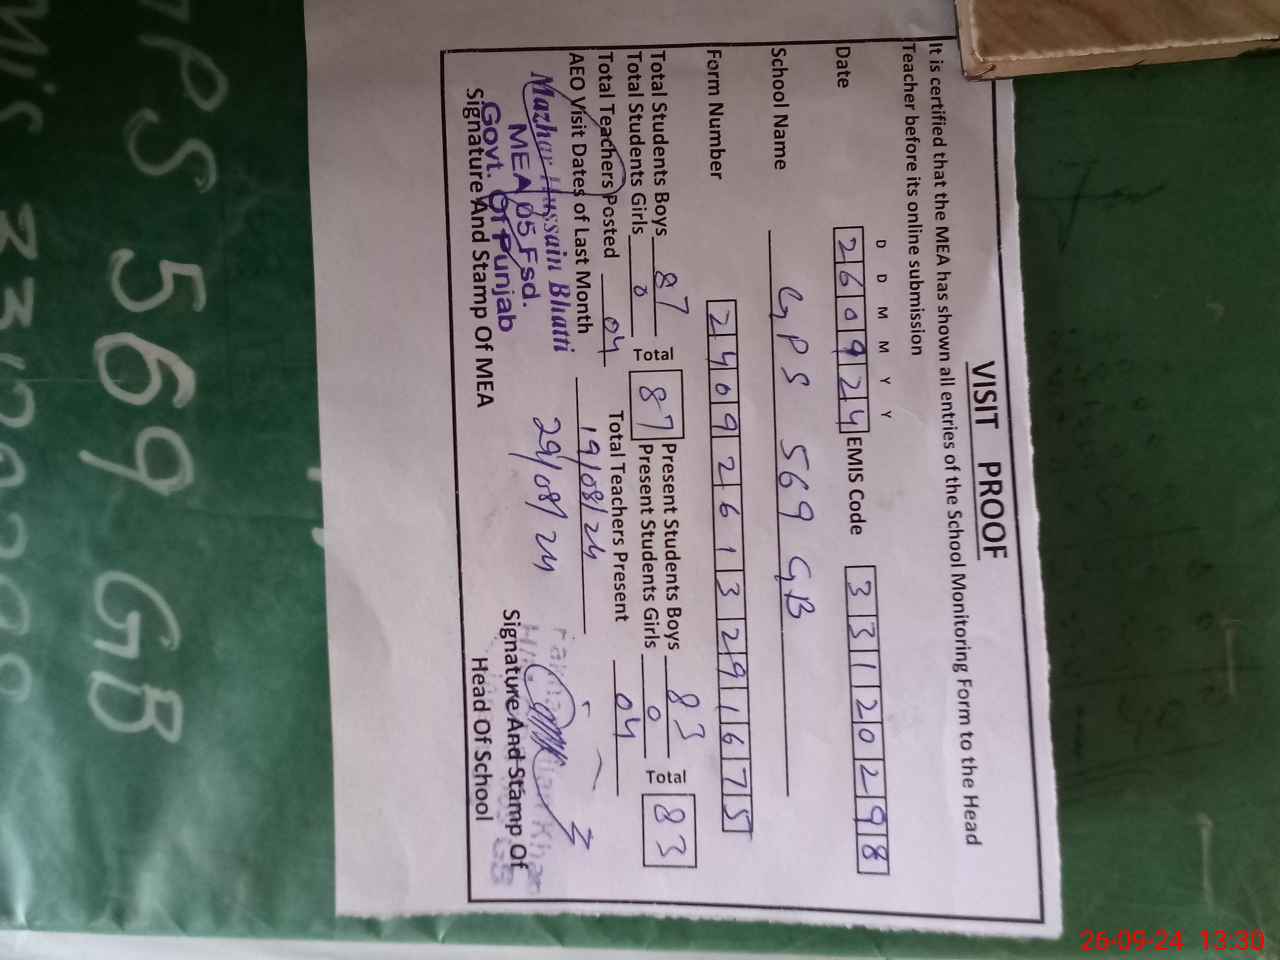 VISIT PROOF
It is certified that the MEA has shown all entries of the School Monitoring Form to the Head
Teacher before its online submission
D D M M Y Y
Date 260924 EMIS Code 33120298
School Name GPS 569 GB
Form Number 24092613291675
Total Students Boys 87 Present Students Boys 83
Total Students Girls 0 Total 87 Present Students Girls 0 Total 83
Total Teachers Posted 04 Total Teachers Present 04
AEO Visit Dates of Last Month 19/08/24
29/08/24
Mazhar Hussain Bhatti
MEA 05 Fsd.
Govt. Of Punjab
Signature And Stamp Of MEA
Signature And Stamp Of
Head Of School
GPS 569 GB
26-09-24 13:30